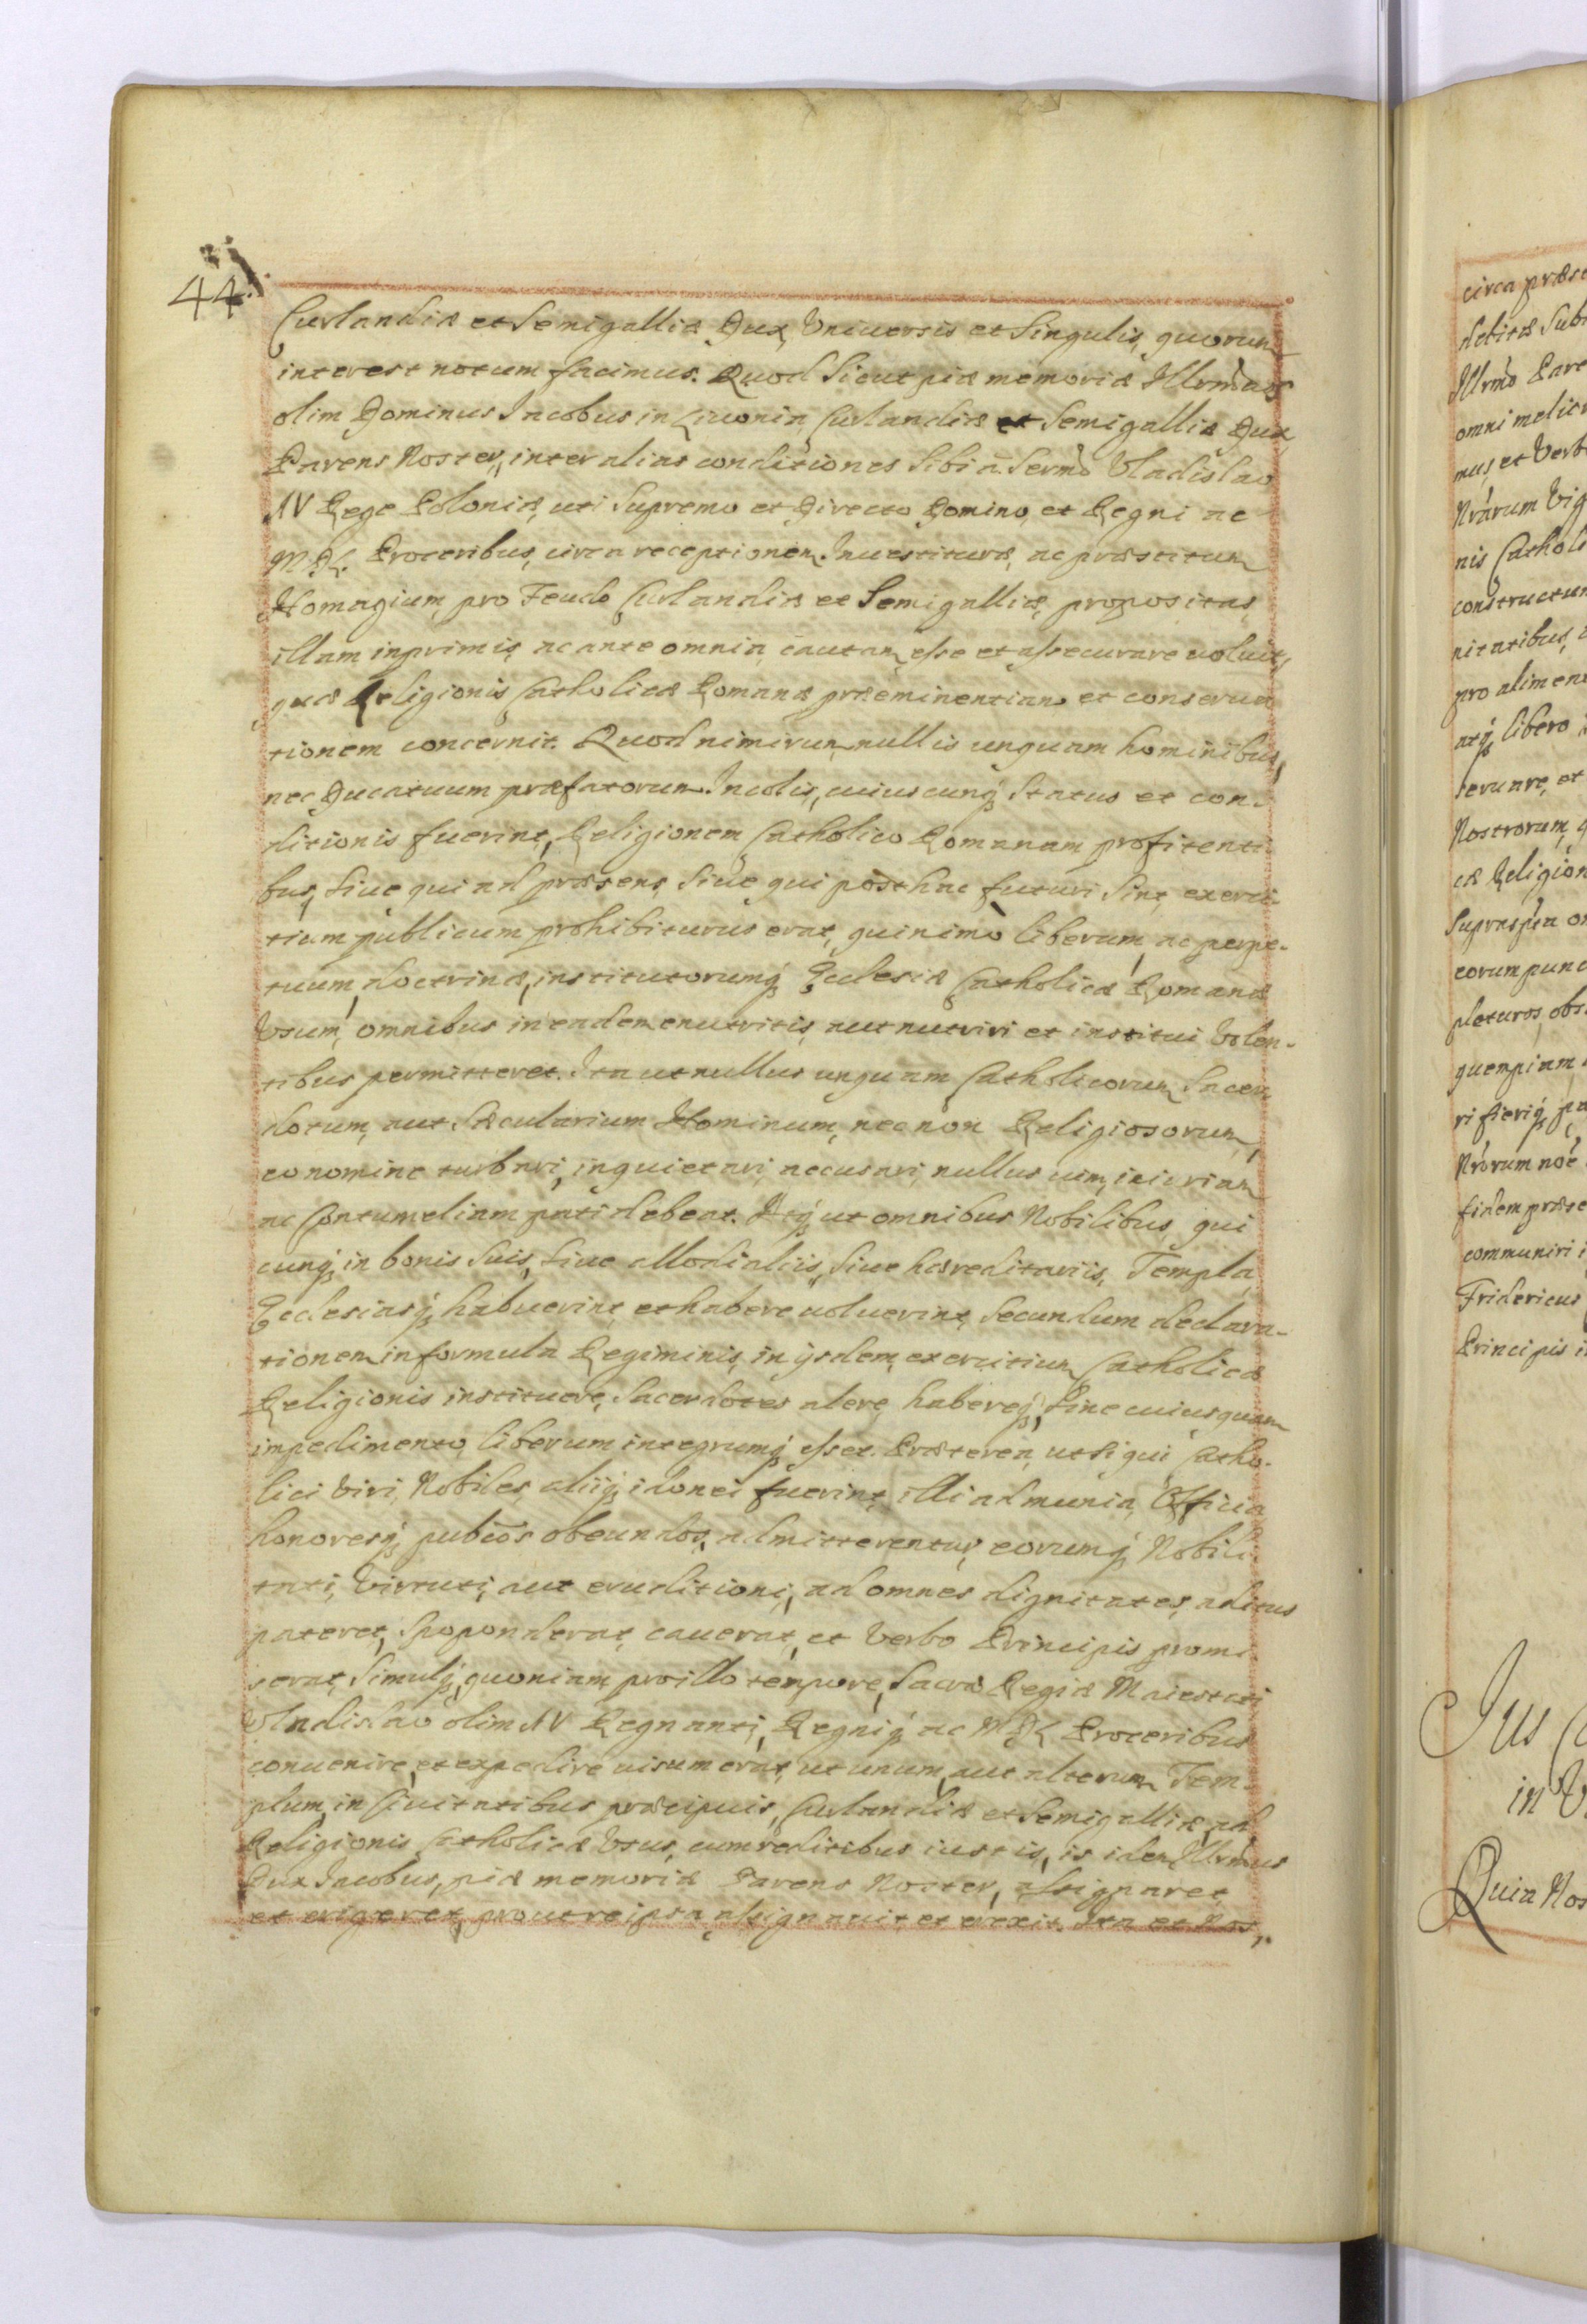 44.
Curlandiæ et Semigalliæ Dux, Vniuersis et Singulis, quorum
interest notum facimus. Quod sicut piæ memoriæ Illrmus
olim Dominus Jacobus in Liuonia, Curlandiæ et Semigalliæ Dux,
Parens Noster, inter alias conditiones sibi à Sermo Vladislao
IV Rege Poloniæ, uti Supremo et Directo Domino, et Regni ac
M.D.L. Proceribus, circa receptionem Inuestituræ, ac præstitum
Homagium, pro Feudo Curlandiæ et Semigalliæ, propositas,
illam inprimis, ac ante omnia, cautam esse et assecurare uoluit,
quæ Religionis Catholicæ Romanæ præeminentiam et conserua
tionem concernit. Quod nimirum nullis unquam hominibus,
nec Ducatuum præfatorum Incolis, cuiuscunq; status et con-
ditionis fuerint, Religionem Catholico Romanam profitenti
bus, siue qui ad præsens, siue qui posthac futuri sint, exerci-
tium publicum prohibiturus erat, quinimò liberum, ac perpe-
tuum, doctrinæ, institutorumq; Ecclesiæ Catholicæ Romanæ
Vsum, omnibus in eadem enutritis, aut nutriri et institui Volen-
tibus permitteret. Ita ut nullus unquam Catholicorum Sacer
dotum, aut Sæcularium Hominum, nec non Religiosorum,
eo nomine turbari, inquietari, accusari, nullus uim, iniuriam
ac Contumeliam pati debeat. Utq; ut omnibus Nobilibus, qui
cunq; in bonis suis, siue allodialiis, siue hæreditariis, Templa,
Ecclesiasq; habuerint, et habere uoluerint, secundum declara-
tionem in formula Regiminis, in ijsdem, exercitium Catholicæ
Religionis instituere, Sacerdotes alere, habereq; sine cuiusquam
impedimento, liberum integrumq; esset. Præterea, ut si qui Catho-
lici Viri, Nobiles, aliiq; idonei fuerint, illi ad munia, Officia
honoresq; pubcos obeundos, admitterentur, eorumq; Nobili
tati, Virtuti, aut eruditioni, ad omnes dignitates, aditus
pateret, spoponderat, cauerat, et Verbo Principis promi
serat, simulq; quoniam pro illo tempore, Sacræ Regiæ Maiestati
Vladislao olim IV Regnanti, Regniq; ac M.D.L. Proceribus
conuenire, et expedire uisum erat, ut unum, aut alterum Tem-
plum, in Ciuitatibus præcipuis, Curlandiæ et Semigalliæ, ad
Religionis Catholicæ Vsus, cum reditibus iustis, is idem Illrmus
Dux Jacobus, piæ memoriæ Parens Noster, assignaret
et erigeret, prout reipsa assignauit et erexit. Ita et Nos,
circa præse
debitæ Subi
Illrmo Pare
omni melior
mus, et Verb
Nrarum Vig
nis Catholi
constructum
nitatibus, c
pro alimen
atq; libero
seruare, et
Nostrorum, q
cæ Religion
Supraspta o
eorum punc
pleturos, obs
quempiam
ri fieriq; pa
Nrorum noe
fidem præse
communiri i
Fridericus
Principis i
Jus C
in V
Quia Nos